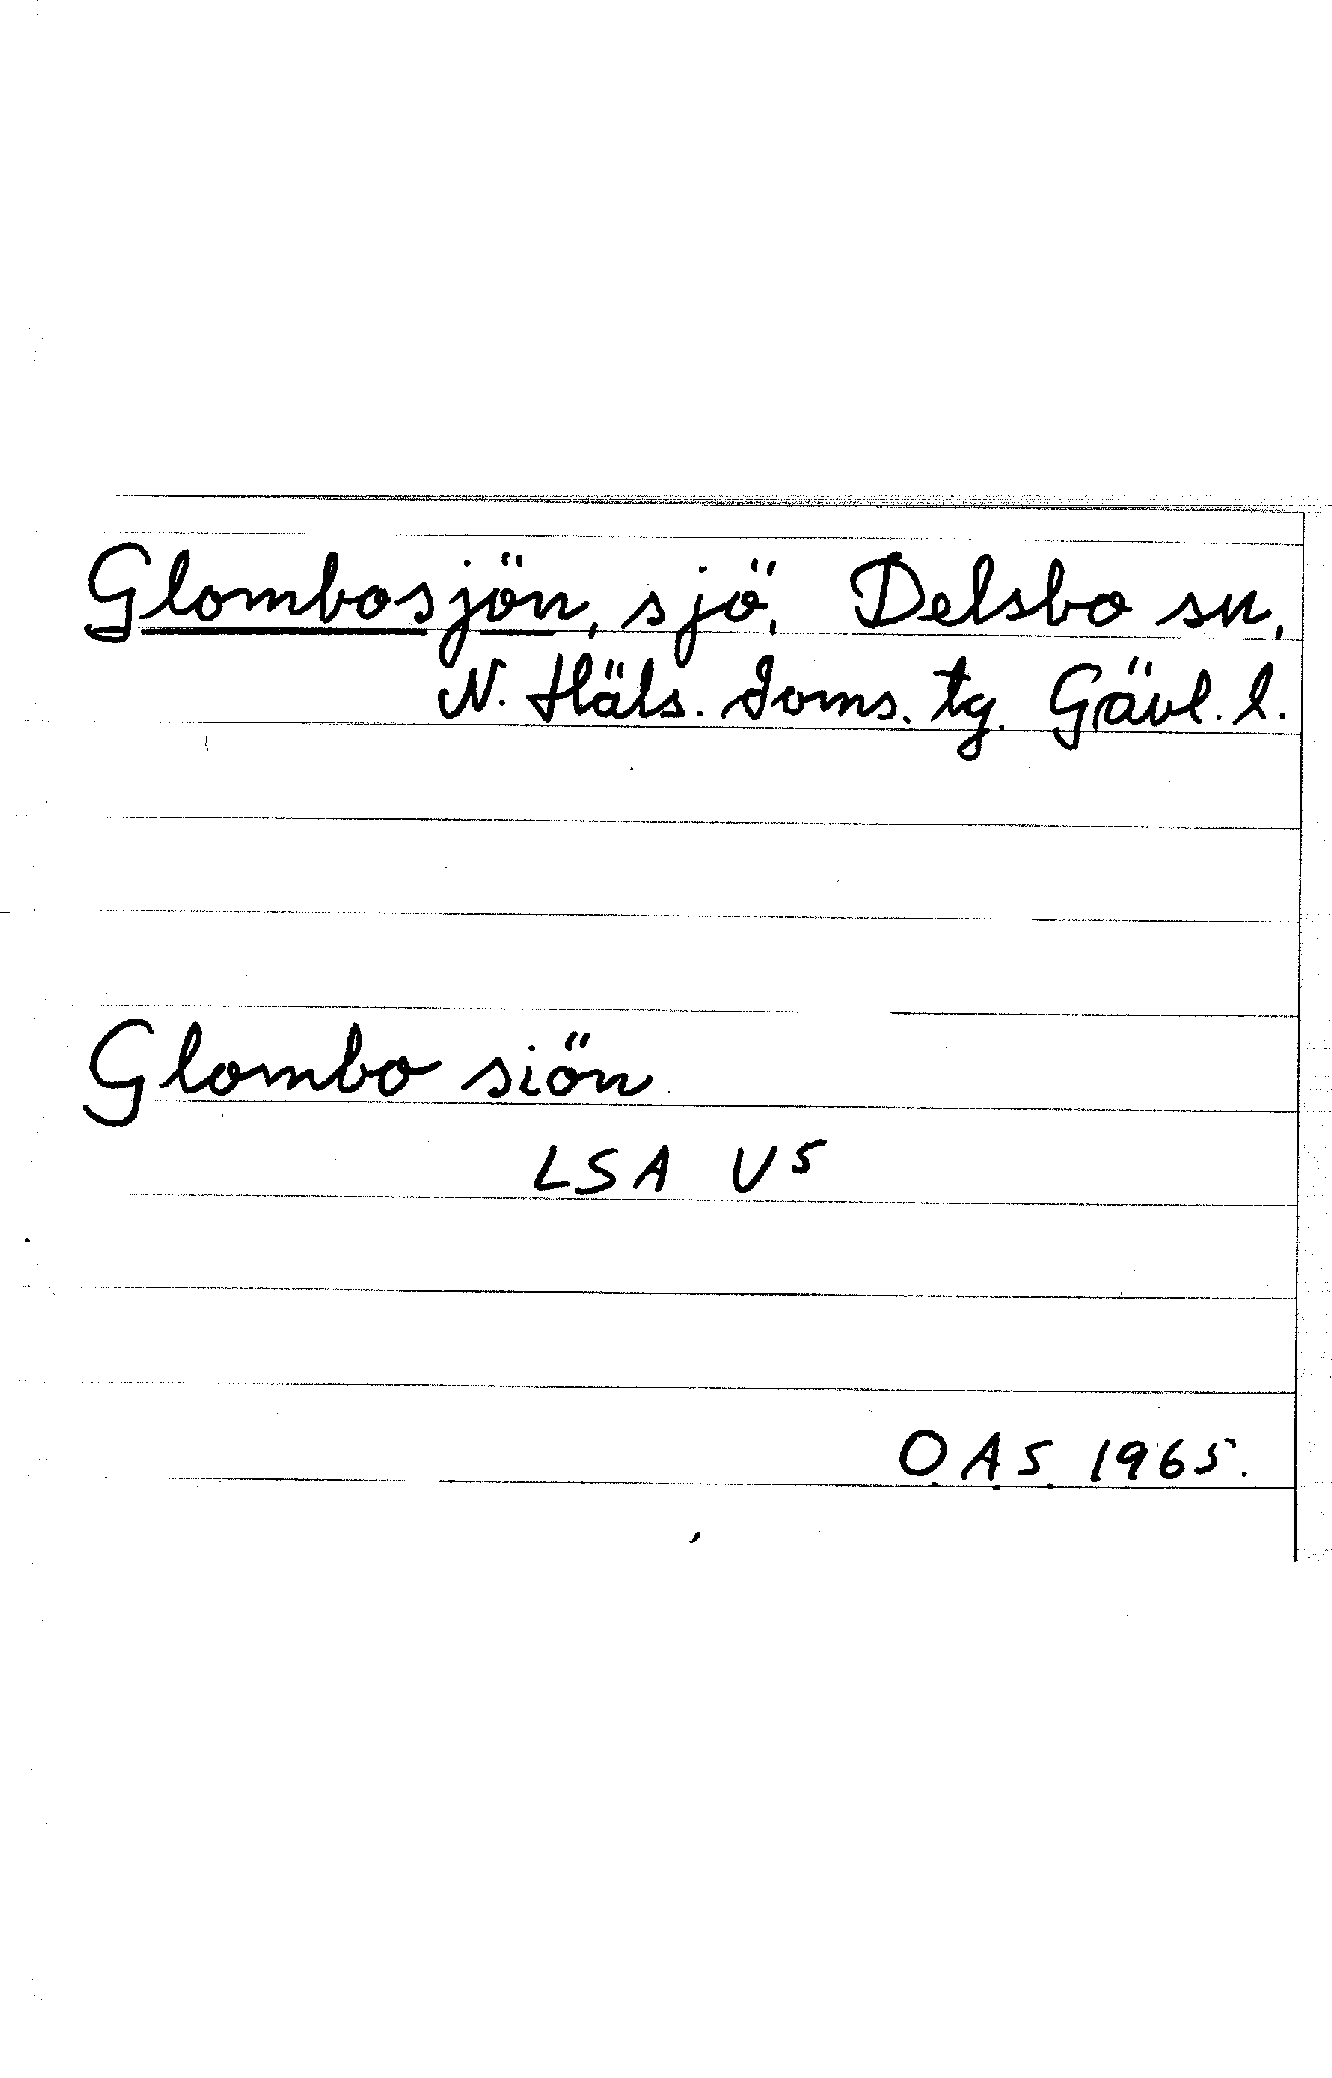 Glombosjön, sjö, Delsbo sn,
N. Häls. doms. tg. Gävl. l.
Glombo siön
LSA U5
O.A.S. 1965.